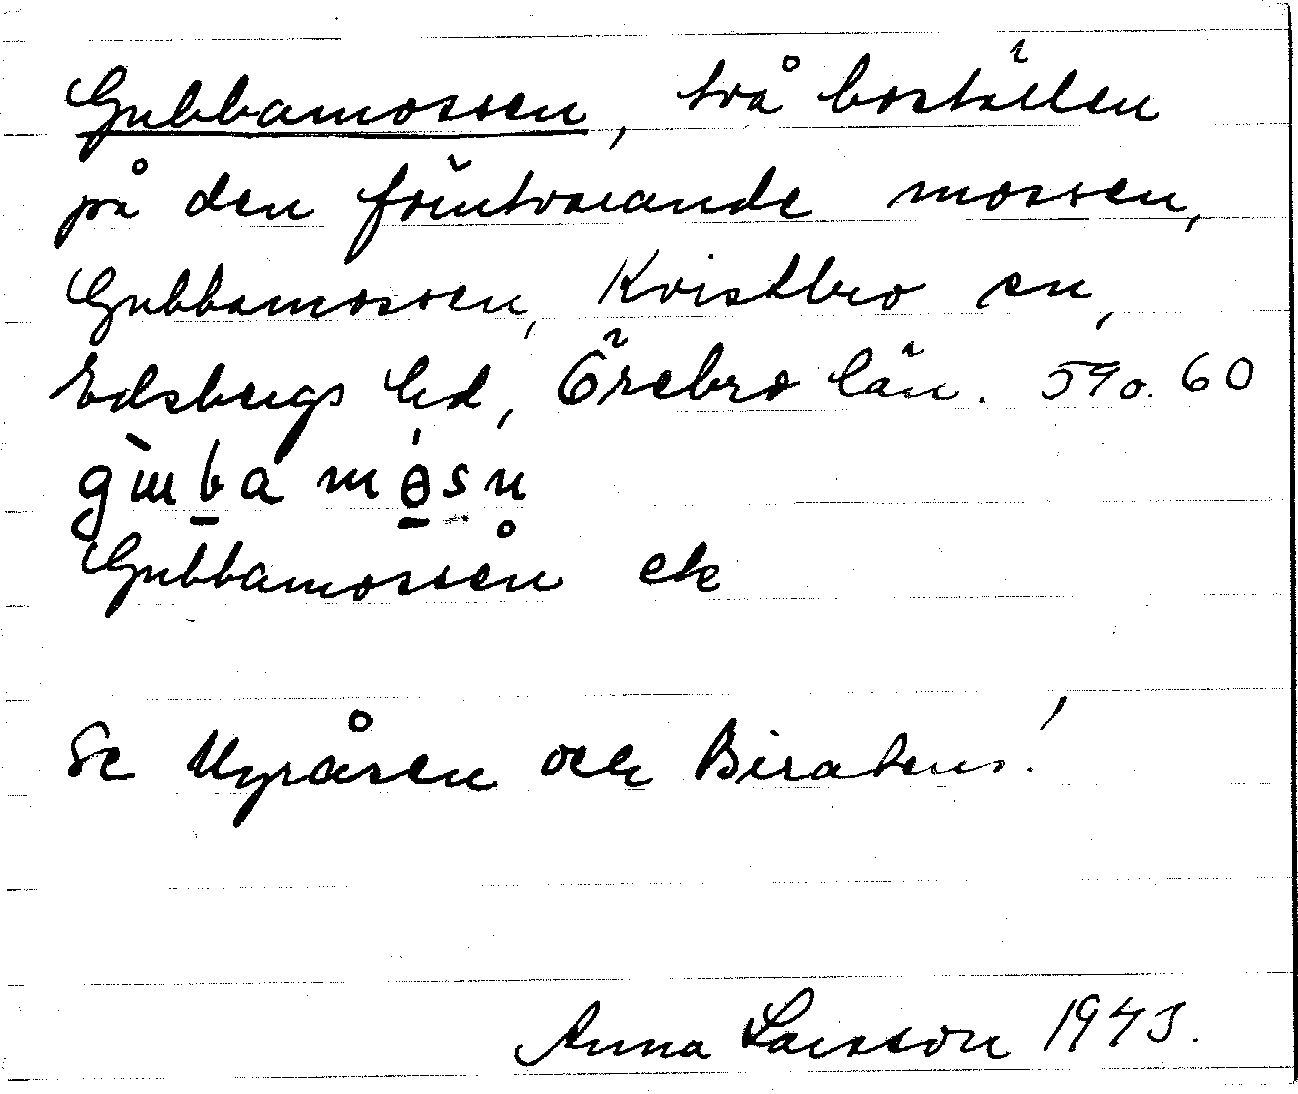 Gubbamossen, två boställen
på den förutvarande mossen,
Gubbamossen, Kvistbro sn,
Edsbergs hd, Örebro län. 59 o. 60
gɯba mɵsn
Gubbamossen ek
Se Myråsen och
Anna Larsson 1943.